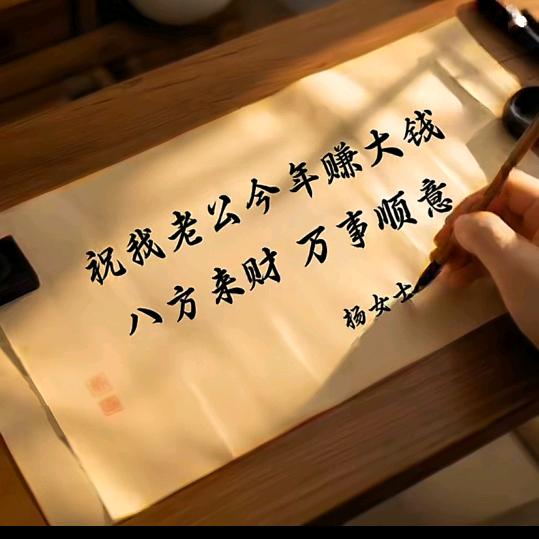 祝我老公今年赚大钱
八方来财 万事顺意
杨女士